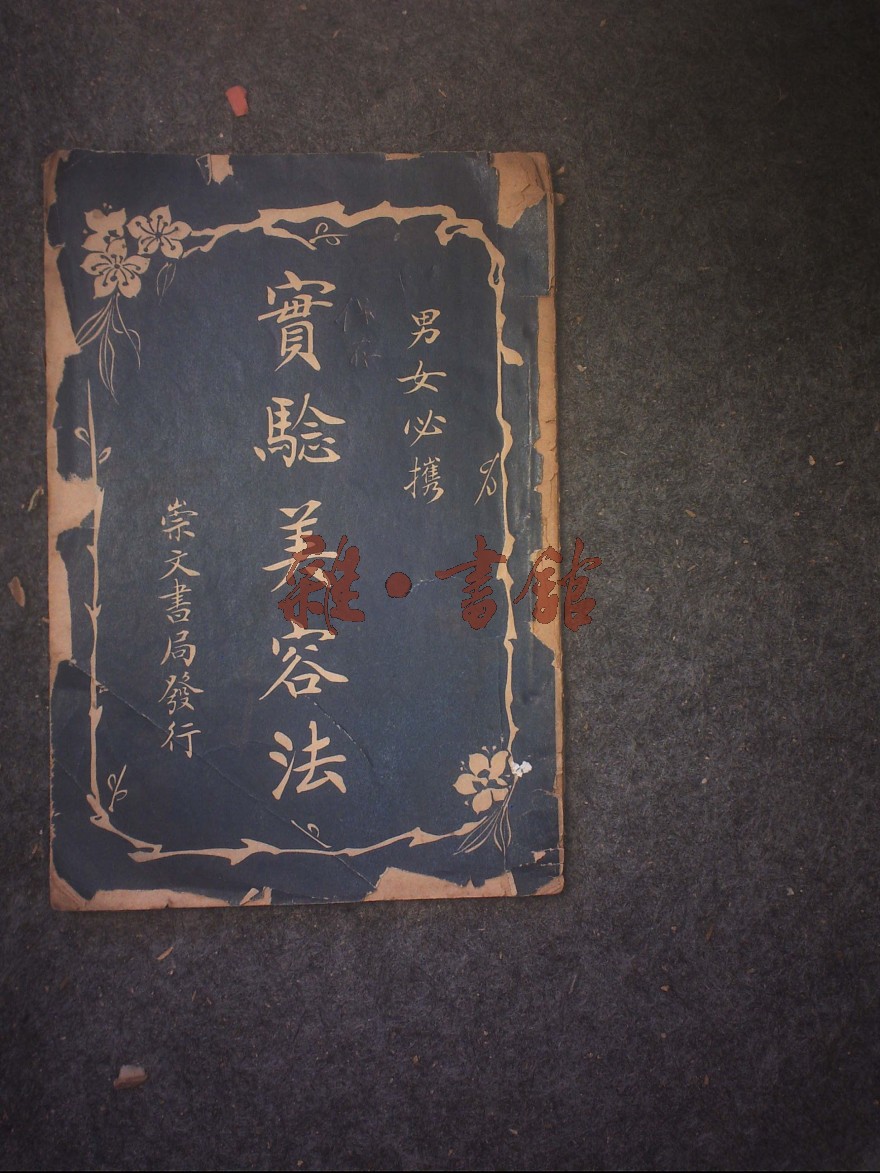 男女必携
實騐美容法
崇文書局發行
雜·書館